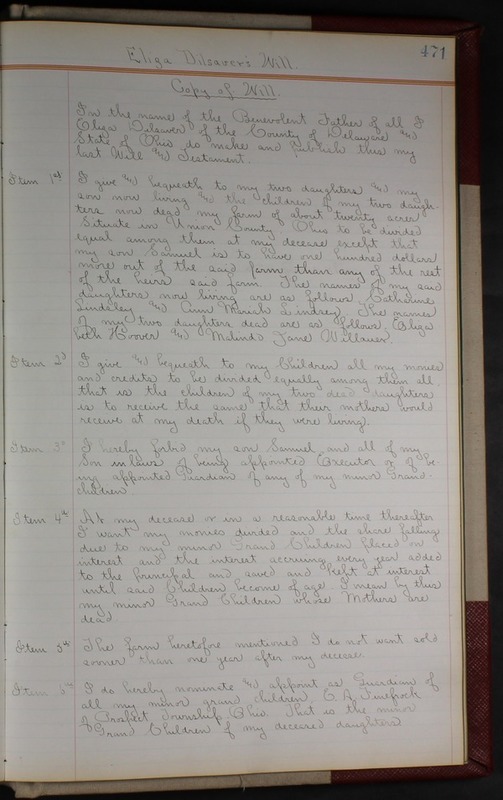 471
Eliza Dilsaver's Will.
Copy of Will.
In the name of the Benevolent Father of all I
Eliza Dilsaver of the County of Delaware and
State of Ohio do make and Publish this my
last Will and Testament.
Item 1st I give and bequeath to my two daughters and my
son now living and the children of my two daugh-
ters now dead my farm of about twenty acres
Situate in Union County Ohio to be divided
equal among them at my decease except that
my son Samuel is to have one hundred dollars
more out of the said farm than any of the rest
of the heirs said farm. The names of my said
daughters now living are as follows Catharine
Lindsley and Ann Mariah Lindsey. The names
of my two daughters dead are as follows Eliza
beth Hoover and Malinda Jane Willauer.
Item 2d I give and bequeath to my Children all my monies
and credits to be divided equally among them all.
that is the children of my two dead Daughters
is to receive the same that their mothers would
receive at my death if they were living.
Item 3d I hereby forbid my son Samuel and all of my
Son in laws of being appointed Executor or of be-
ing appointed Guardian of any of my minor Grand-
children.
Item 4th At my decease or in a reasonable time thereafter
I want my monies divided and the share falling
due to my minor Grand Children placed on
interest and the interest accruing every year added
to the principal and saved and kept at interest
until said Children become of age. I mean by this
my minor Grand Children whose Mothers are
dead.
Item 5th The farm heretofore mentioned I do not want sold
sooner than one year after my decease.
Item 6th I do hereby nominate and appoint as Guardian of
all my minor grand children, C. A.
of Prospect Township Ohio. That is the minor
Grand Children of my deceased daughters